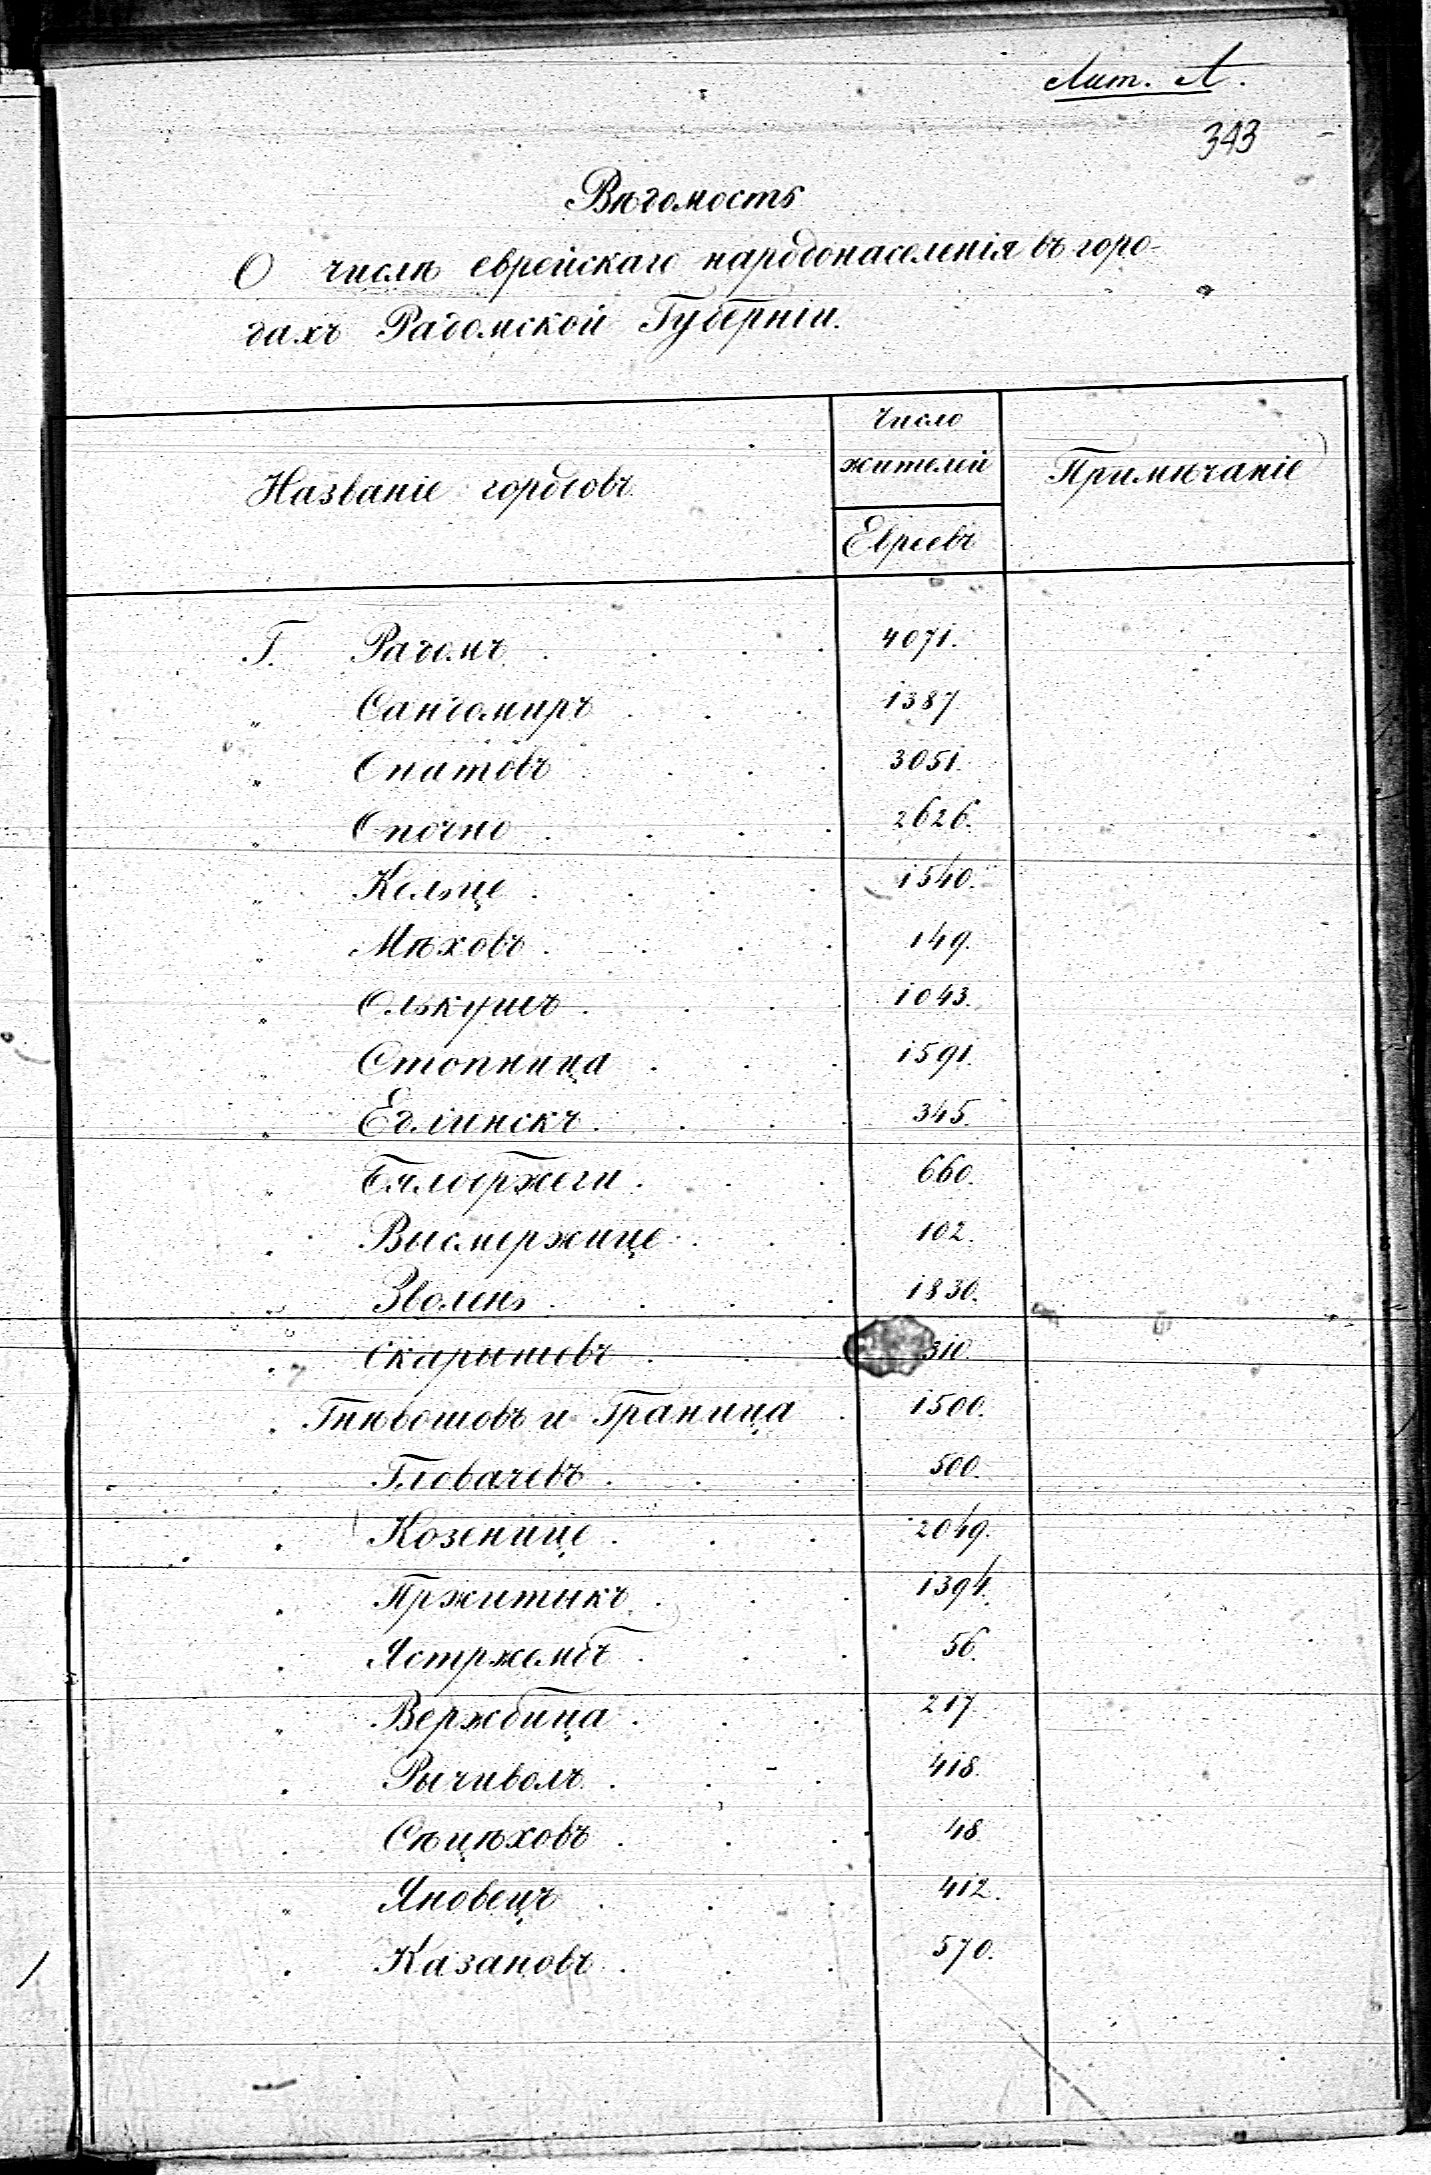 Лит. А.
343
Вѣдомость
О числѣ еврейскаго народонаселенія въ горо-
дахъ Радомской Губерніи.
Названіе городовъ
Число
жителей
Евреевъ
Примѣчаніе
Г. Радомъ . . . . 4071.
„ Сандомиръ . . . 1387
„ Опатовъ . . . . 3051.
„ Опочно . . . . 2626.
„ Кельце . . . . 1540.
„ Мѣховъ . . . . 149.
„ Олькушъ . . . . 1043.
„ Стопница . . . 1591.
„ Едлинскъ . . . . 345.
„ Бялобржеги . . . 660.
„ Высмержице . . . 102.
„ Зволень . . . . 1830.
„ Скарышевъ . . . 310.
„ Гнѣвошовъ и Граница . 1500.
„ Гловачевъ . . . 500.
„ Козенице . . . 2049.
„ Пржитыкъ . . . 1394.
„ Ястржембъ . . . 56.
„ Вержбица . . . 217
„ Рычиволъ . . . 418.
„ Сѣцѣховъ . . . 48
„ Яновецъ . . . 412.
„ Казановъ . . . 570.